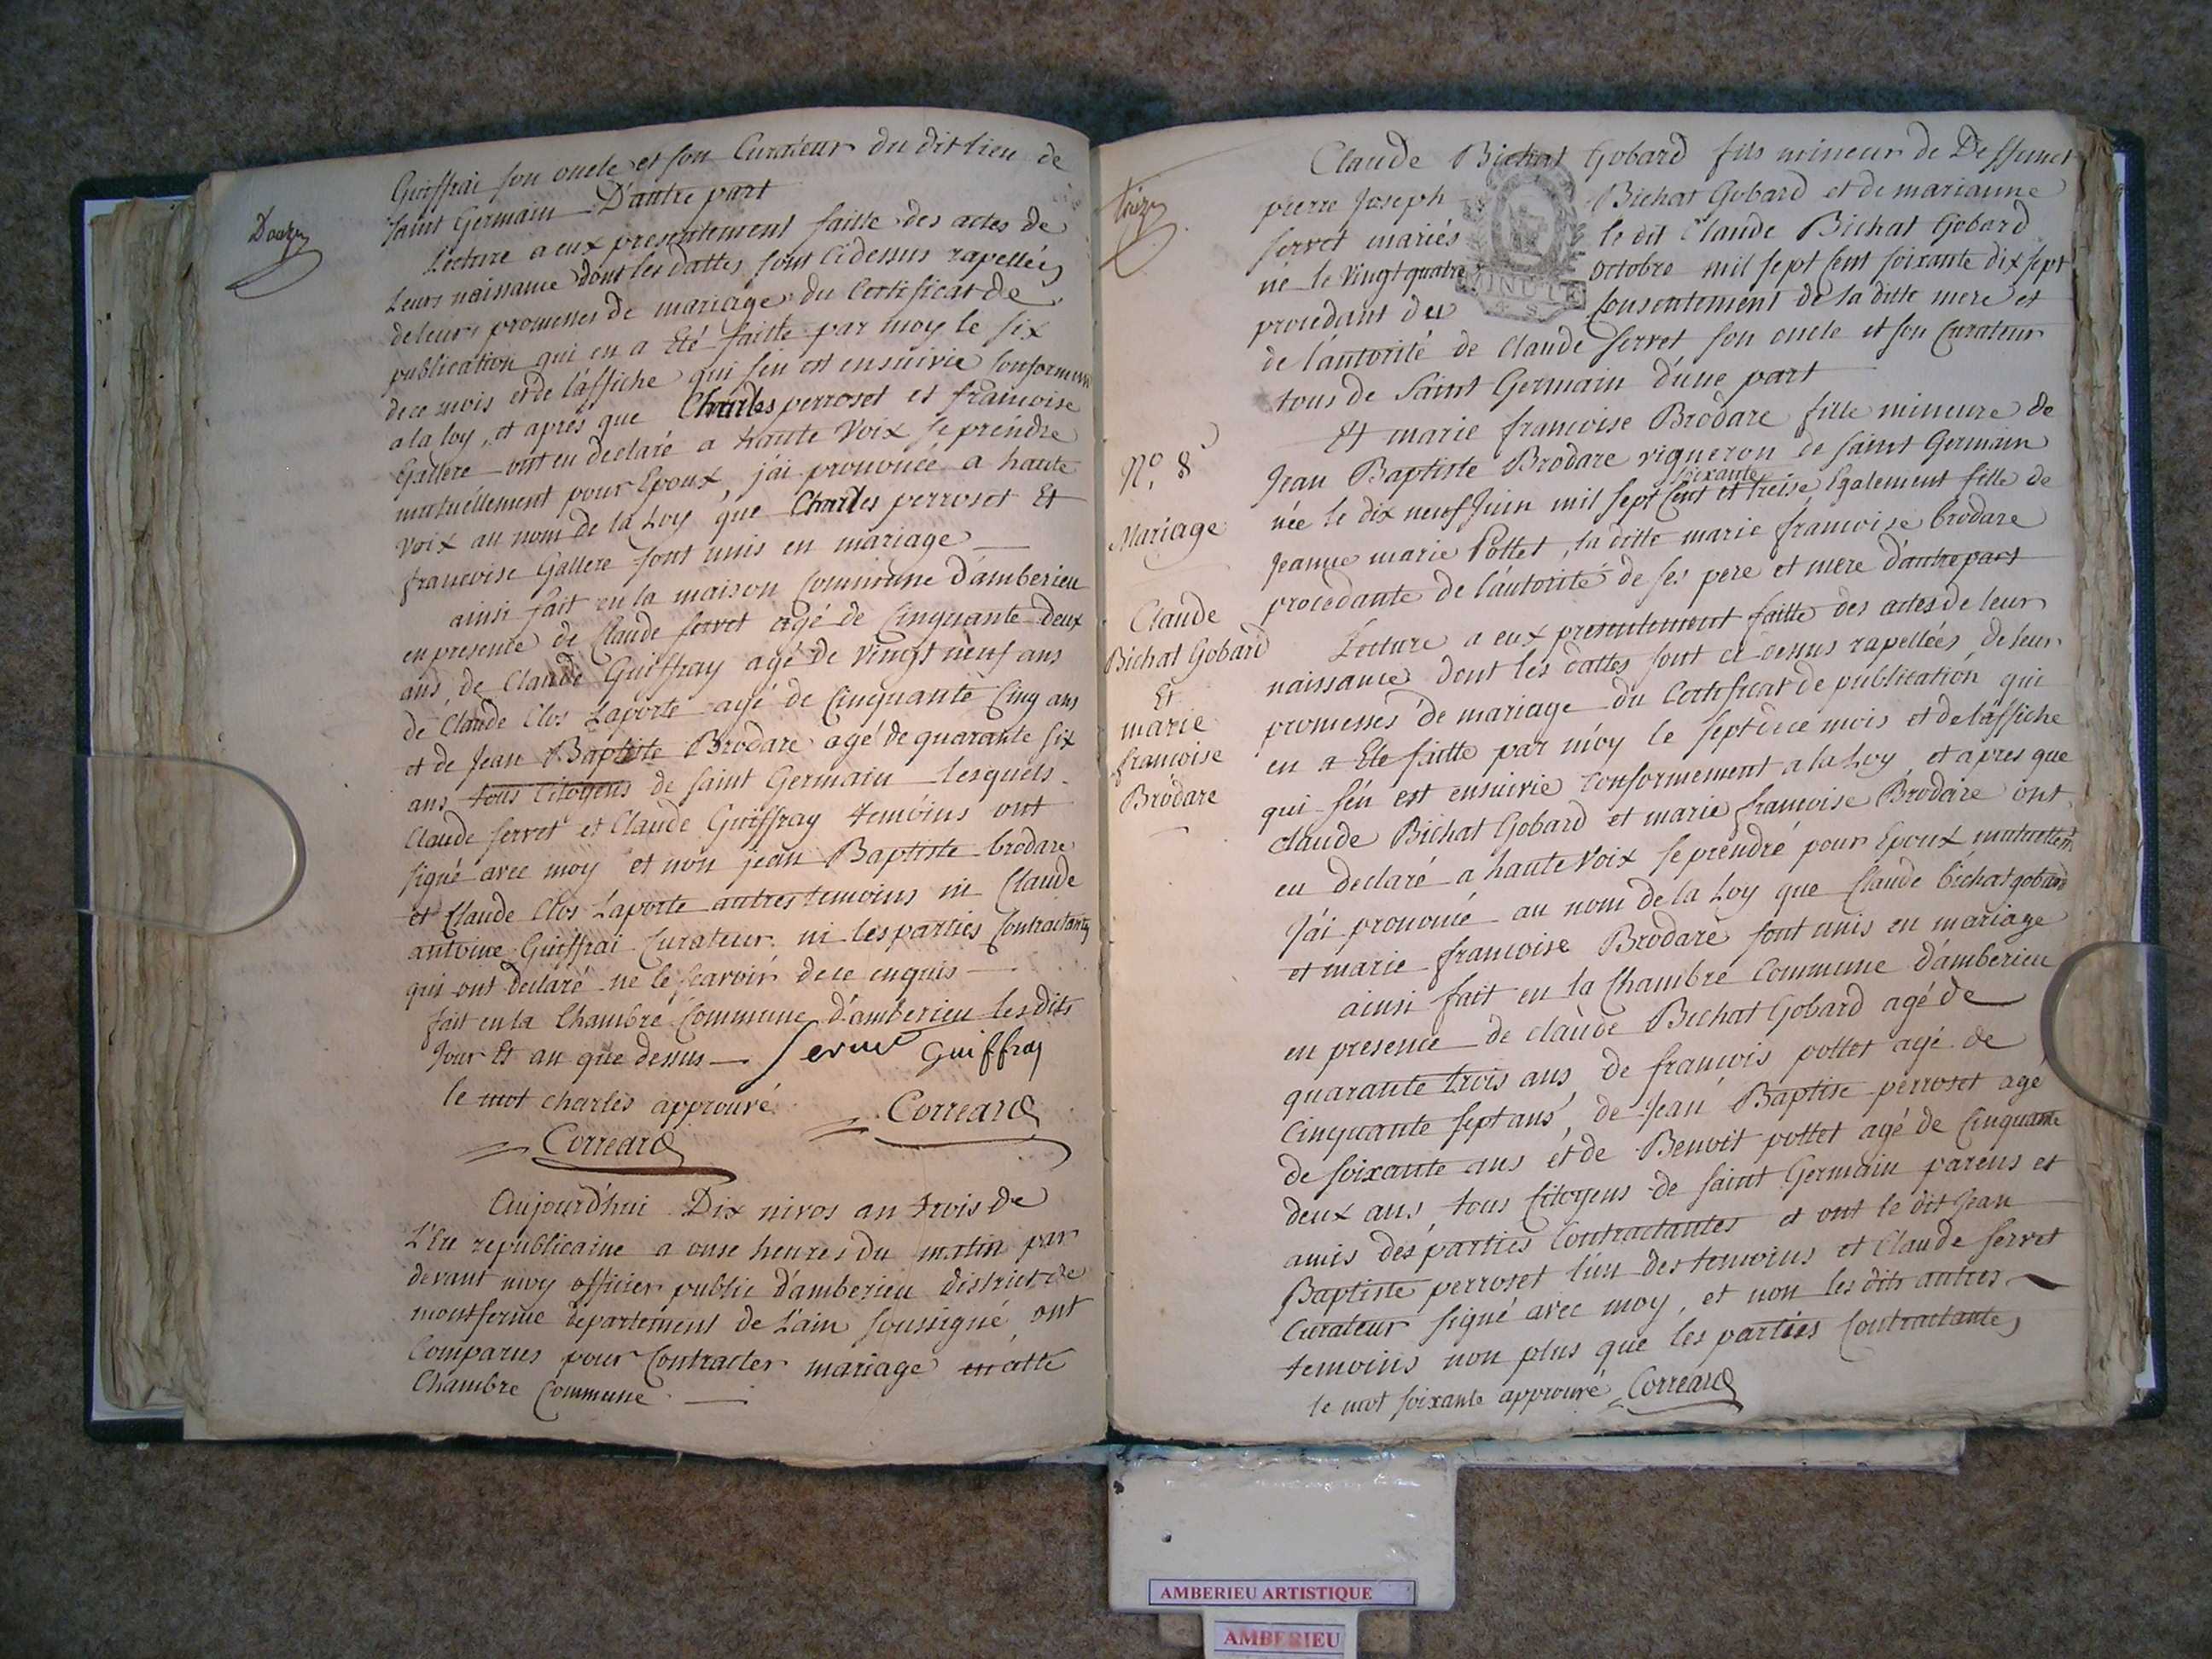 Douze
Guiffrai son oncle et son Curateur du dit lieu de
saint Germain D'autre part
Lecture a eux presentement faitte des actes de
leurs naissance dont les dattes sont cidessus rapellées
de leurs promesses de mariage du Certificat de
publication qui en a Eté faitte par moy le six
de ce mois et de laffiche qui s'en est ensuivie conformem
a la loy, et aprés que Charles perroset et francoise
Gallere ont eu declaré a haute voix se prendre
mutuéllement pour Epoux, j'ai prononcé a haute
voix au nom de la Loy que Charles perroset Et
francoise Gallere sont unis en mariage
ainsi fait en la maison Commune d'amberieu
en presence de Claude servet agé de cinquante deux
ans de Claude Guiffray agé de vingt neuf ans
de Claude Clos Laporte agé de Cinquante Cinq ans
et de Jean Baptiste Brodare agé de quarante six
ans tous Citoyens de saint Germain lesquels
Claude servet et Claude Guiffray temoins ont
signé avec moy et non jean Baptiste brodare
et Claude Clos Laporte autres temoins ni Claude
antoine Guiffrai Curateur ni les parties Contractantes
qui ont declaré ne le scavoir de ce enquis
fait en la Chambre Commune d'amberieu les dits
Jour Et an que dessus Servet Guiffray
le mot charles approuvé Correard
Correard
Aujourd'hui Dix nivos an trois de
L'Ere republicaine a onse heures du matin par
devant moy officier public d'amberieu district de
montferme departement de L'ain soussigné, ont
Comparus pour Contracter mariage en cette
Chambre Commune
treize
Claude Bichat Gobard fils mineur de Deffunct
pierre Joseph Bichat Gobard et de marianne
servet mariés le dit Claude Bichat Gobard
né le vingt quatre octobre mil sept cent soixante dix sept
procedant du Consentement de la ditte mere et
MINUTE
de l'autorité de Claude servet son oncle et son Curateur
tous de Saint Germain d'une part
Et marie francoise Brodare fille mineure de
N° 8
Jean Baptiste Brodare vigneron de saint Germain
soixante
née le dix neuf Juin mil sept Cent et treise Egalement fille de
Mariage
Jeanne marie Pottet, la ditte marie francoise brodare
procedante de l'autorité de ses pere et mere d'autre part
Claude
Bichat Gobard
Et
marie
francoise
Brodare
Lecture a eux presentement faitte des actes de leur
naissance dont les dattes sont ci dessus rapellées, de leur
promesses de mariage du Certificat de publication qui
en a Ete faitte par moy le sept de ce mois et de l'affiche
qui s'en est ensuivie conformement a la Loy, et apres que
claude Bichat Gobard et marie francoise Brodare ont
eu declaré a haute voix se prendre pour Epoux mutuellem
J'ai prononcé au nom de la Loy que Claude bichat gobard
et marie francoise Brodare sont unis en mariage
ainsi fait en la Chambre Commune d'amberieu
en presence de claude Bichat Gobard agé de
quarante trois ans, de francois pottet agé de
Cinquante sept ans, de Jean Baptise perroset agé
de soixante ans et de Benoit pottet agé de Cinquante
deux ans, tous Citoyens de saint Germain parens et
amis des parties Contractantes et ont le dit Jean
Baptiste perroset l'un des temoins et Claude servet
Curateur signé avec moy, et non les dits autres
temoins non plus que les parties Contractantes
le mot soixante approuvé Correard
AMBERIEU ARTISTIQUE
AMBERIEU